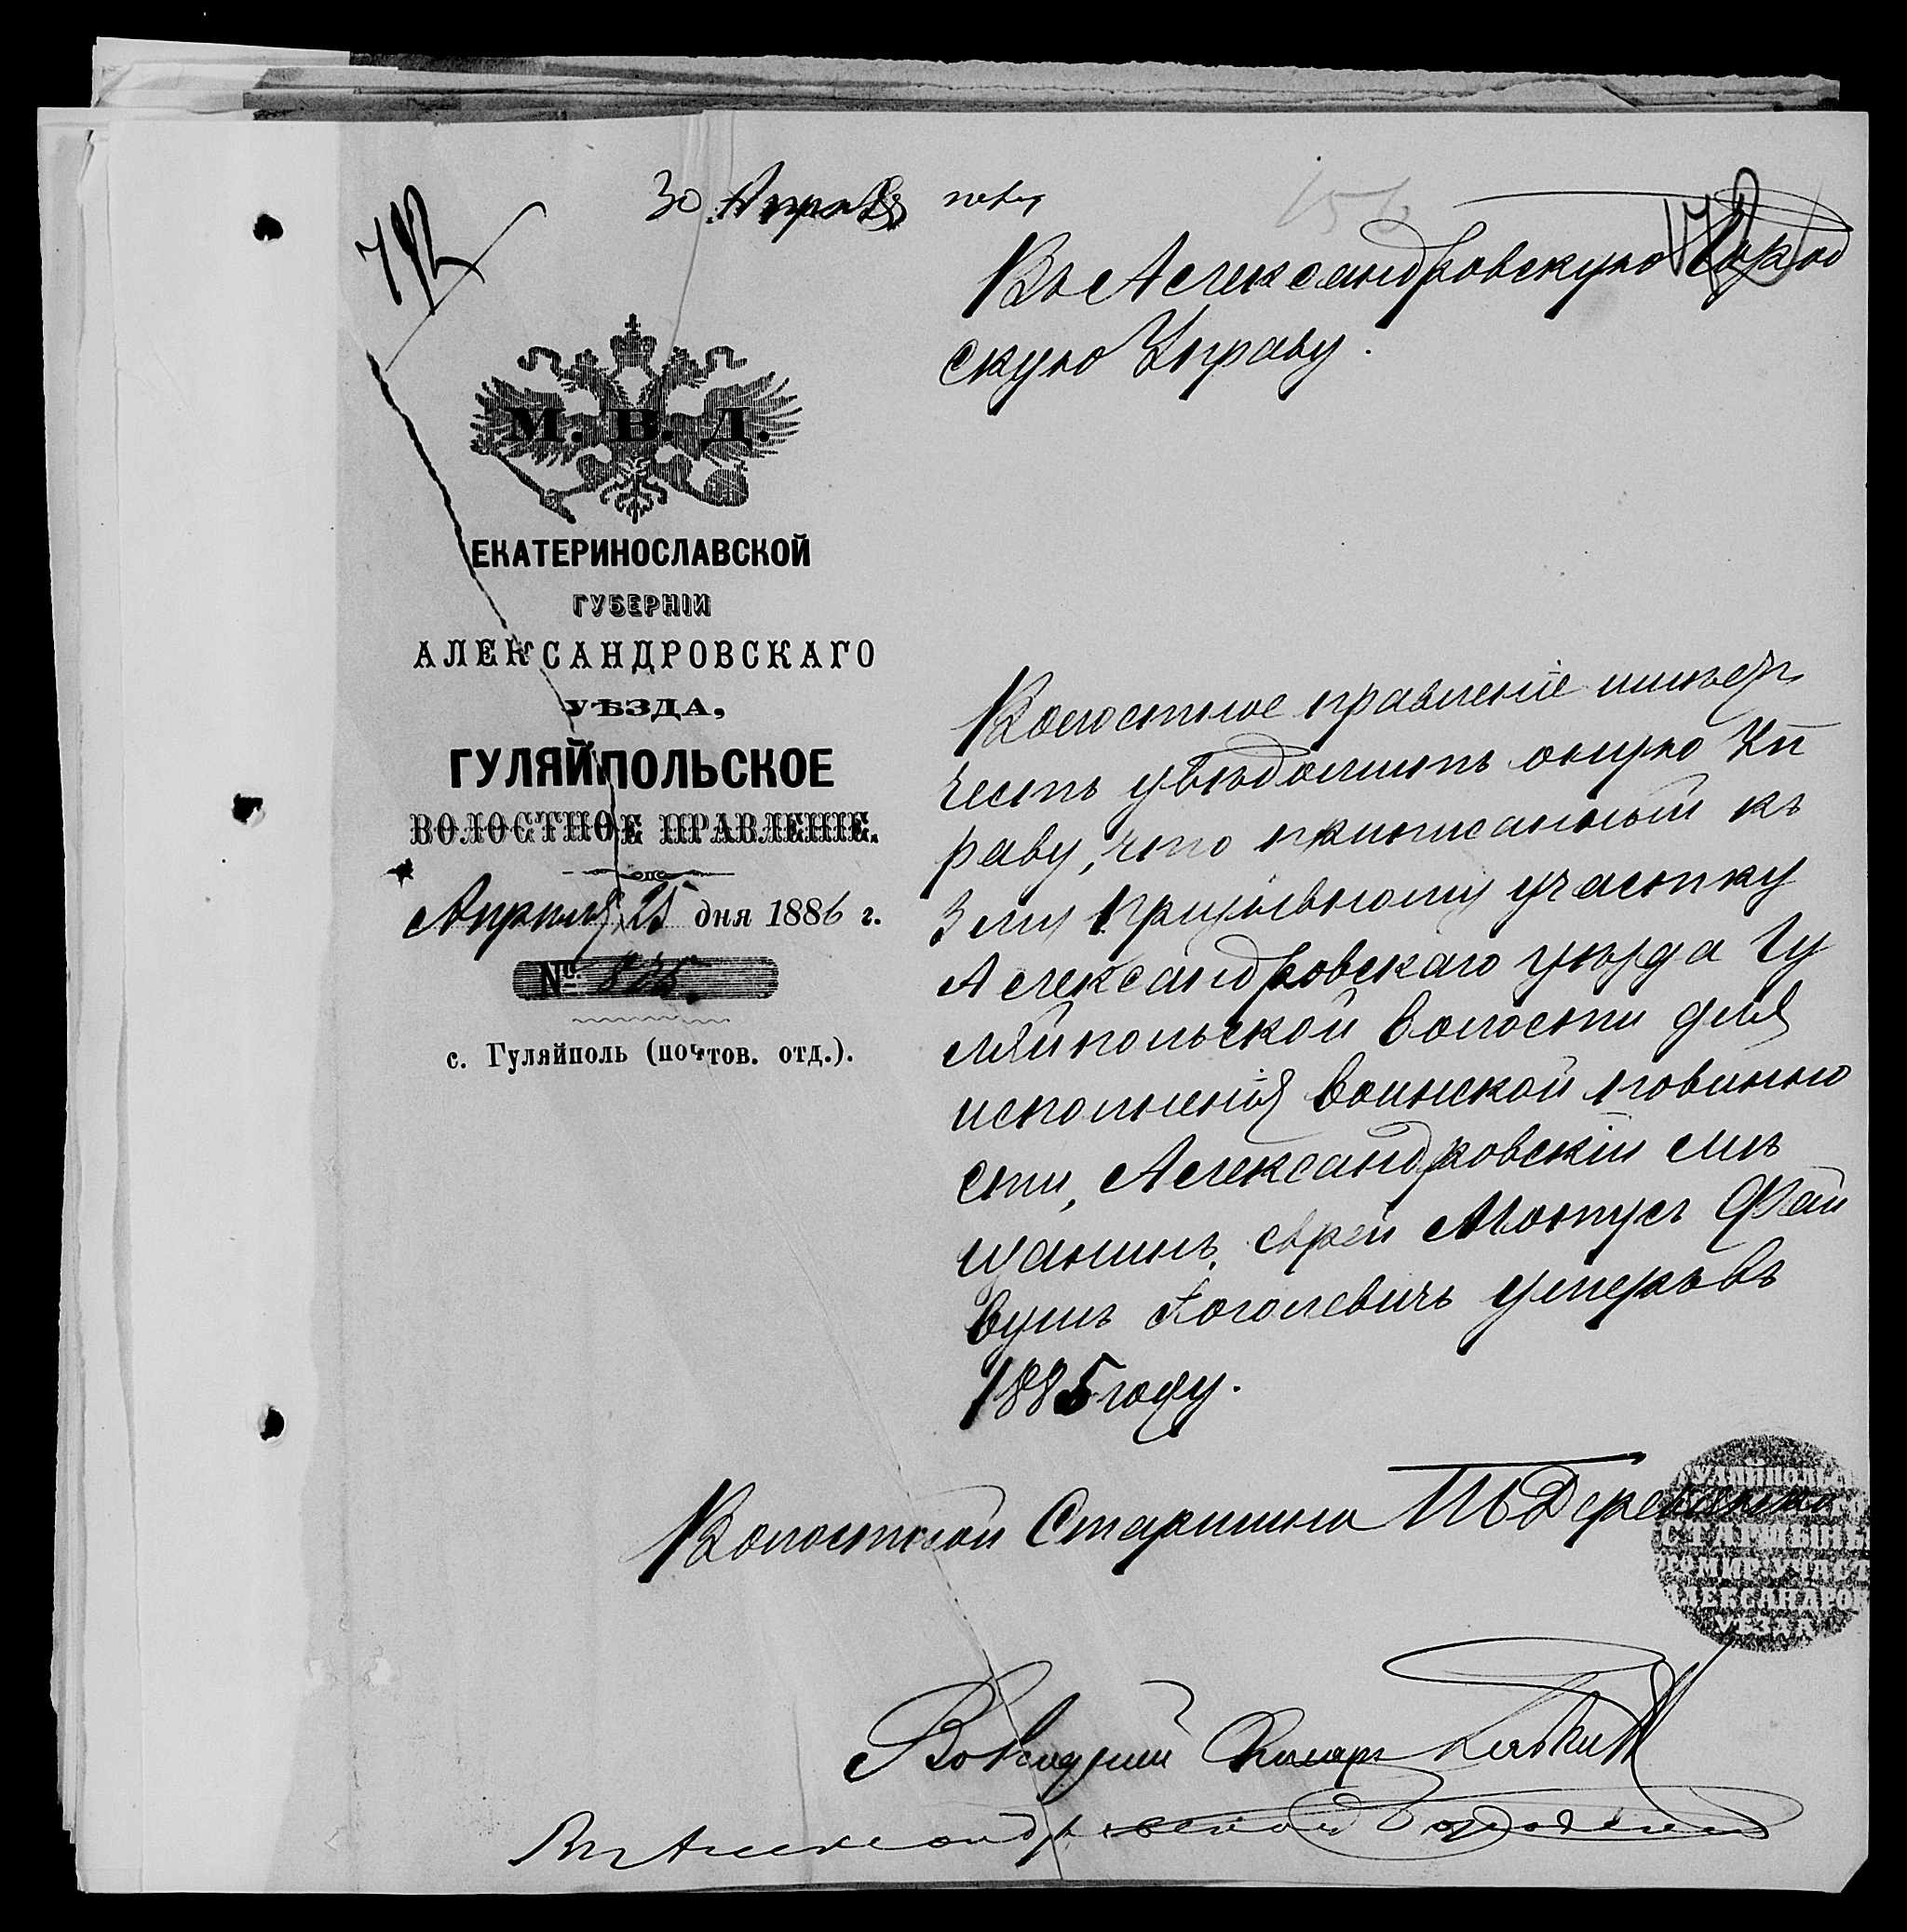 30 Апрѣля
792
172
156
Въ Александровскую Город
скую Управу.
М. В. Д.
ЕКАТЕРИНОСЛАВСКОЙ
ГУБЕРНІИ
АЛЕКСАНДРОВСКАГО
УѢЗДА,
ГУЛЯЙПОЛЬСКОЕ
ВОЛОСТНОЕ ПРАВЛЕНІЕ.
Апрѣля 25 дня 1886 г.
№ 835.
с. Гуляйполь (почтов. отд.).
Волостное правленіе имѣетъ
честь увѣдомить оную Уп
раву, что приписанный къ
3му призывному участку
Александровскаго уѣзда Гу
ляйпольской волости для
исполненія воинской повинно
сти, Александровскій мѣ
щанинъ, еврей Мотусъ Фай
вушъ Гоголевичь умеръ въ
1885 году.
Волостной Старшина Деревянко
ГУЛЯЙПОЛЬС
СТАРШИНЫ
МИР. УЧАСТ
АЛЕКСАНДРОВ
УѢЗДА
Волостной Писарь
Въ Александровской Городской